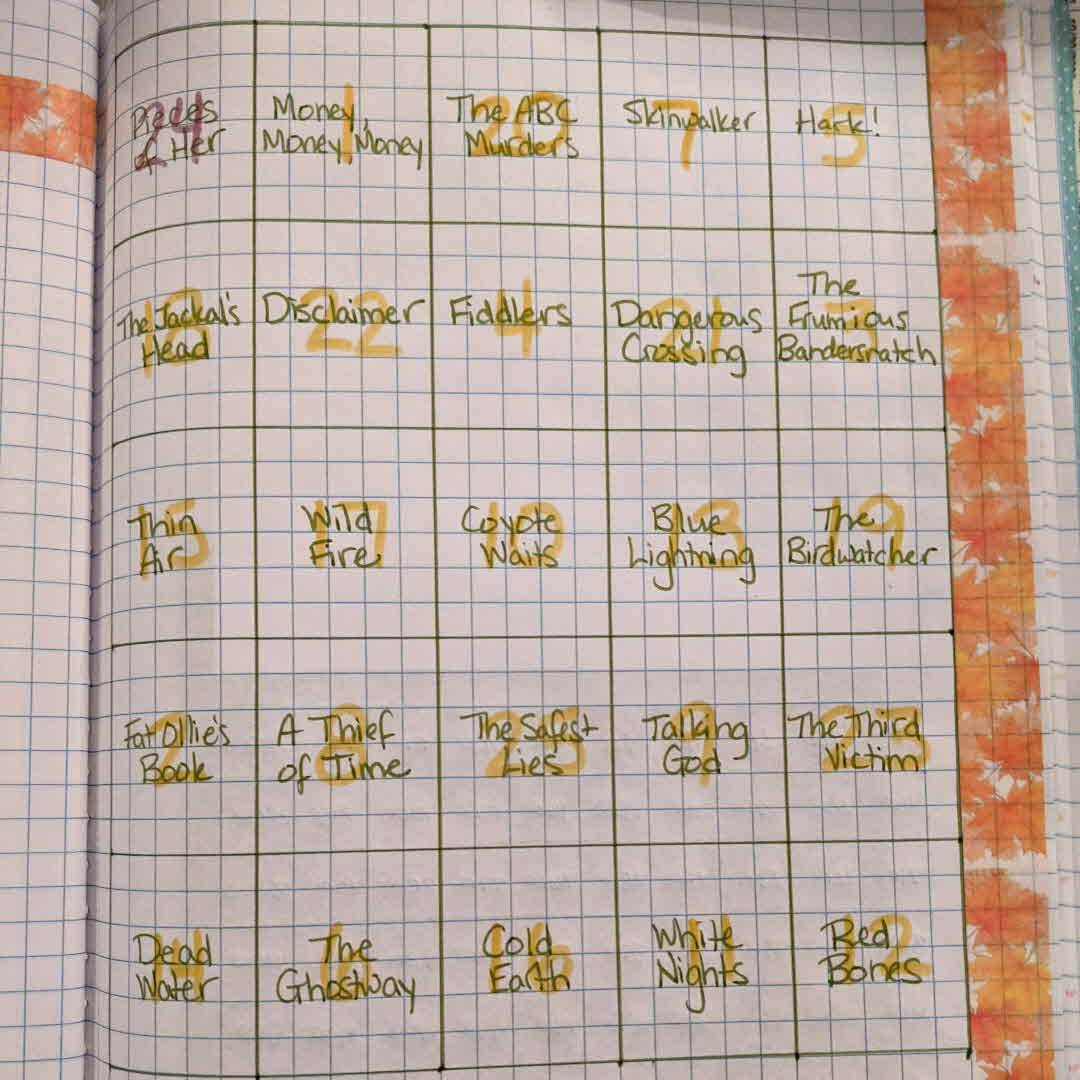 Pieces
of Her
Money,
Money, Money
The ABC
Murders
Skinwalker
Hark!
The Jackal's
Head
Disclaimer
Fiddlers
Dangerous
Crossing
The
Frumious
Bandersnatch
Thin
Air
Wild
Fire
Coyote
Waits
Blue
Lightning
The
Birdwatcher
Fat Ollie's
Book
A Thief
of Time
The Safest
Lies
Talking
God
The Third
Victim
Dead
Water
The
Ghostway
Cold
Earth
White
Nights
Red
Bones
1
20
7
5
22
4
21
3
15
17
10
13
19
2
8
25
9
23
14